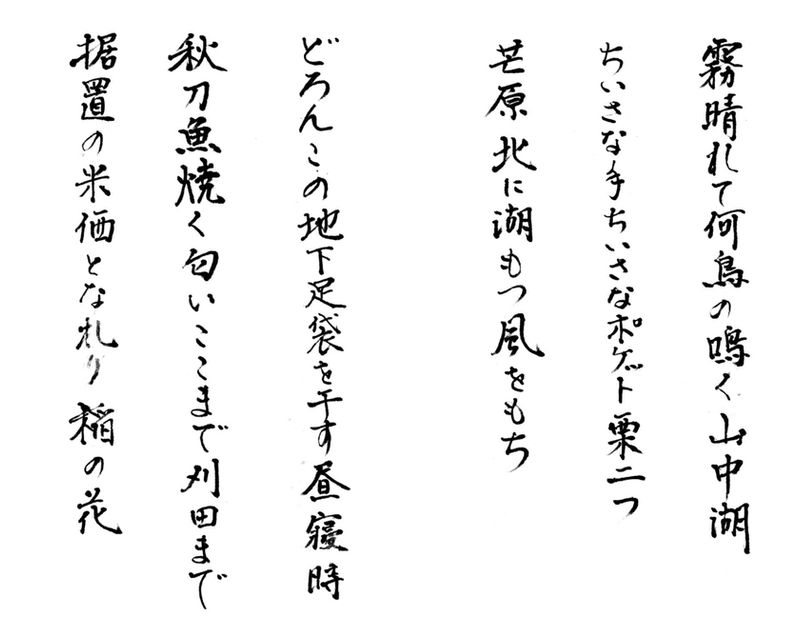 霧晴れて何鳥の鳴く山中湖
ちいさな手ちいさなポケット栗二つ
芒原北に湖もつ風をもち
どろんこの地下足袋を干す昼寝時
秋刀魚焼く匂いここまで刈田まで
据置の米価となれり稲の花